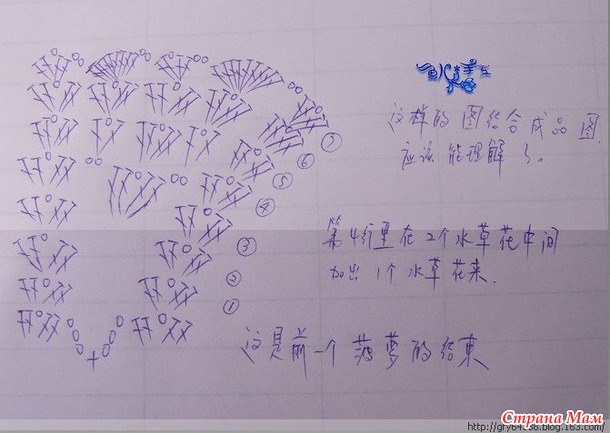 这样的图结合成品图
应该能理解了。
第4行里在2个水草花中间
加出1个水草花来.
这是前一个菠萝的结束
⑦
⑥
⑤
④
③
②
①
Страна Мам